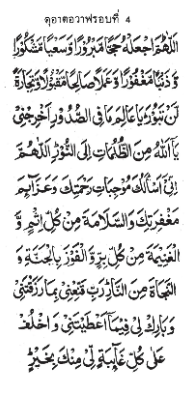 ดุอาตอวาฟรอบที่ 4
اَللّٰهُمَّ اجْعَلْهُ حَجًّا مَّبْرُوْرًا وَّسَعْيًا مَّشْكُوْرًا
وَّذَنْبًا مَّغْفُوْرًا وَّعَمَلًا صَالِحًا مَّقْبُوْلًا وَّتِجَارَةً
لَّنْ تَبُوْرَ يَا عَالِمَ مَا فِى الصُّدُوْرِ اَخْرِجْنِيْ
يَا اَللّٰهُ مِنَ الظُّلُمَاتِ اِلَى النُّوْرِ اَللّٰهُمَّ
اِنِّيْ اَسْاَلُكَ مُوْجِبَاتِ رَحْمَتِكَ وَعَزَآئِمَ
مَغْفِرَتِكَ وَالسَّلَامَةَ مِنْ كُلِّ اِثْمٍ وَّ
الْغَنِيْمَةَ مِنْ كُلِّ بِرٍّ وَّ الْفَوْزَ بِالْجَنَّةِ وَ
النَّجَاةَ مِنَ النَّارِ رَبِّ قَنِّعْنِيْ بِمَا رَزَقْتَنِيْ
وَ بَارِكْ لِيْ فِيْمَآ اَعْطَيْتَنِيْ وَ اخْلُفْ
عَلٰى كُلِّ غَآئِبَةٍ لِّيْ مِنْكَ بِخَيْرٍ